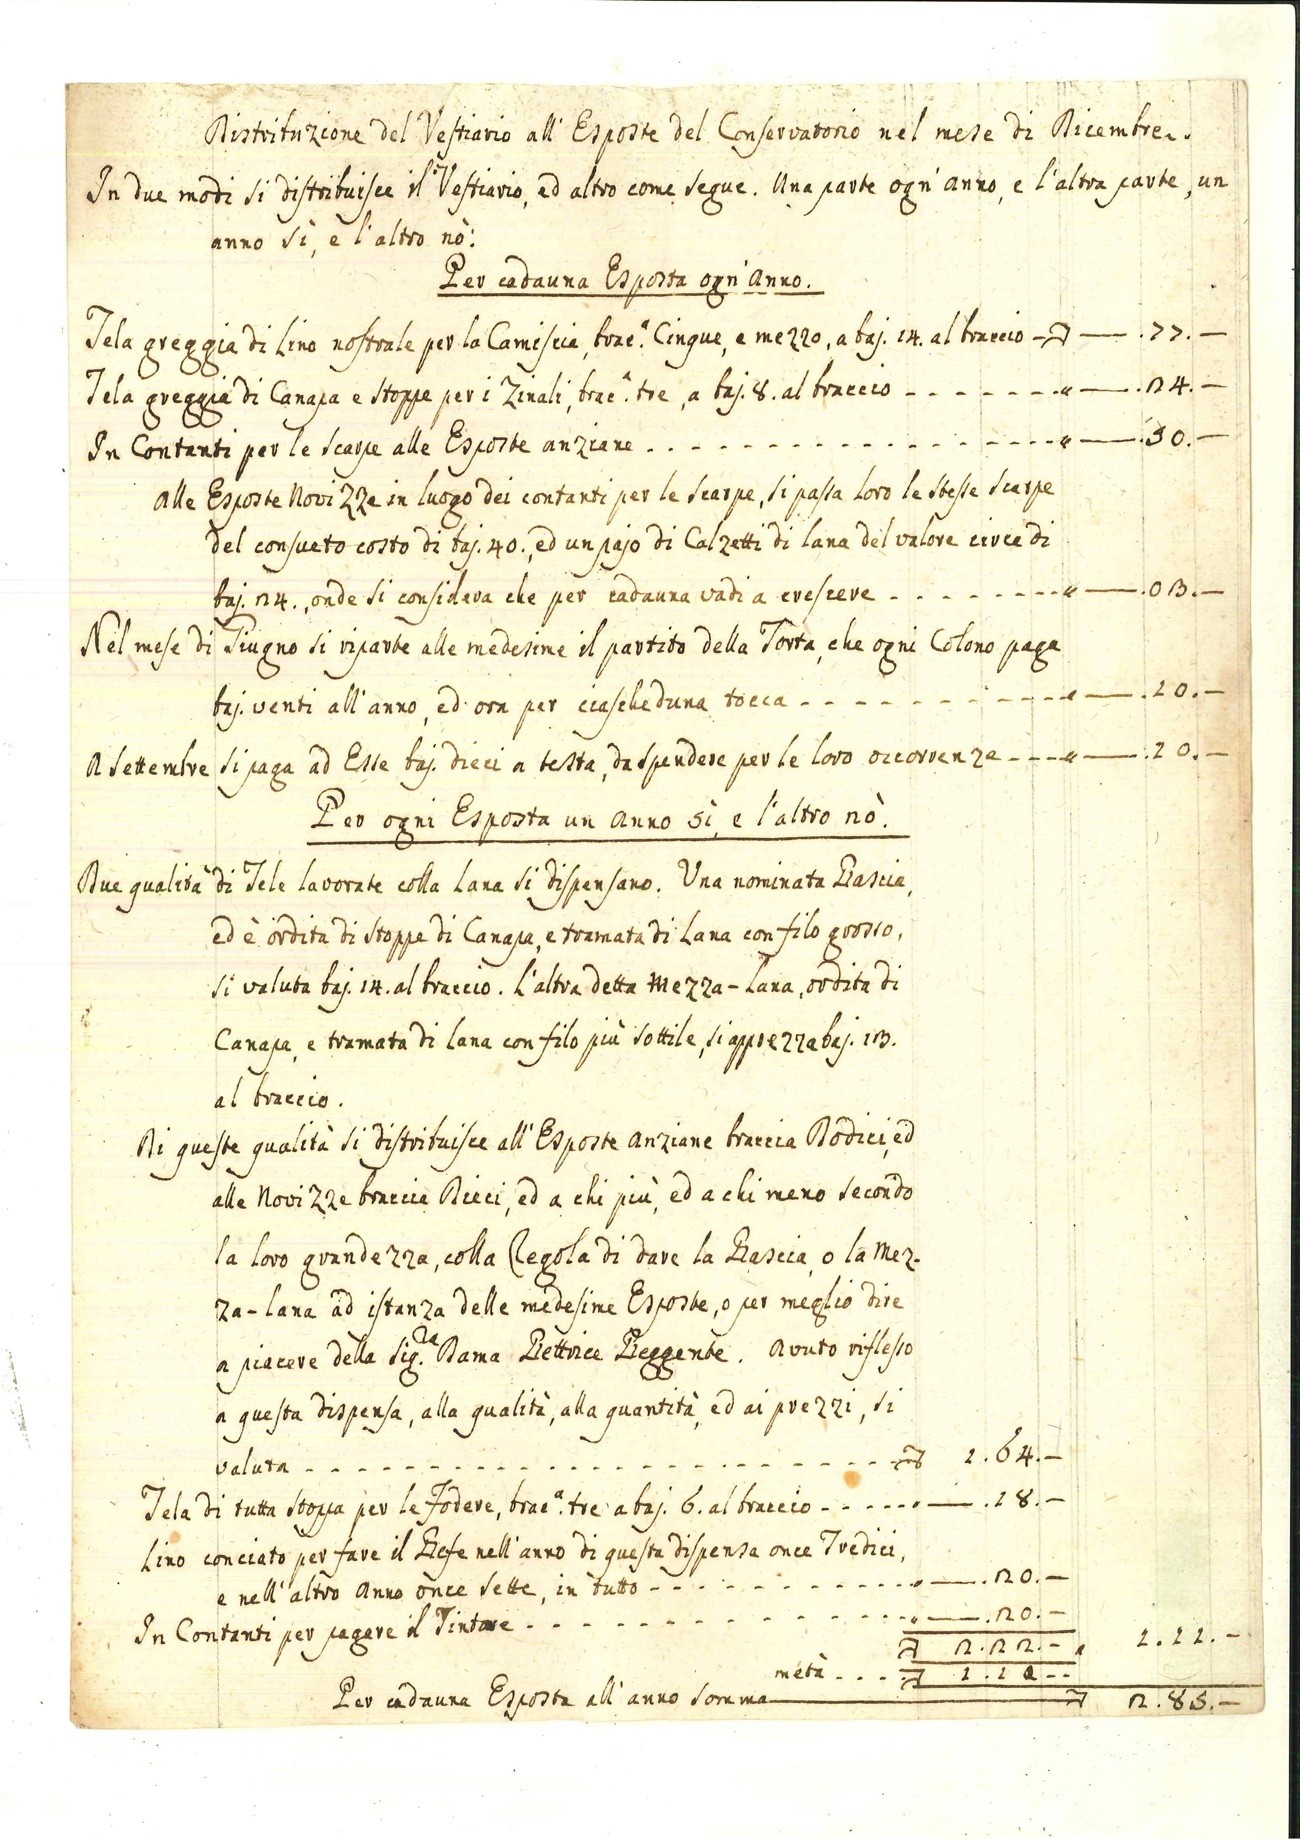 Distribuzione del Vestiario all' Esposte del Conservatorio nel mese di Dicembre.
In due modi si distribuisce il Vestiario, ed altro come segue. Una parte ogn' anno, e l'altra parte, un
anno sì, e l'altro nò:
Per cadauna Esposta ogn' Anno.
Tela greggia di Lino nostrale per la Camiscia, brac.ª Cinque, e mezzo, a baj. 14. al braccio — .77.—
Tela greggia di Canapa e stoppe per i Zinali, brac.ª tre, a baj. 8. al braccio - - - - - - - " — .24.—
In Contanti per le scarpe alle Esposte anziane - - - - - - - - - - - - - - - - " — .50.—
Alle Esposte Novizze in luogo dei contanti per le scarpe, si passa loro le stesse scarpe
del consueto costo di baj. 40., ed un pajo di Calzetti di lana del valore circa di
baj. 24., onde si considera che per cadauna vadi a crescere - - - - - - - - " — .03.—
Nel mese di Giugno si riparte alle medesime il partito della Torta, che ogni Colono paga
baj. venti all' anno, ed ora per ciascheduna tocca - - - - - - - - - - - " — .10.—
A Settembre si paga ad Esse baj. dieci a testa, da spendere per le loro occorrenze - - - " — .10.—
Per ogni Esposta un Anno sì, e l'altro nò.
Due qualità di Tele lavorate colla Lana si dispensano. Una nominata Rascia,
ed è ordita di stoppe di Canapa, e tramata di Lana con filo grosso,
si valuta baj. 14. al braccio. L'altra detta Mezza-lana, ordita di
Canapa, e tramata di lana con filo più sottile, si apprezza baj. 13.
al braccio.
Di queste qualità si distribuisce all' Esposte Anziane braccia Dodici, ed
alle Novizze braccia Dieci, ed a chi più, ed a chi meno secondo
la loro grandezza, colla Regola di dare la Rascia, o la Mez-
za-lana ad istanza delle medesime Esposte, o per meglio dire
a piacere della Sig.ra Dama Rettrice Reggente. Avuto riflesso
a questa dispensa, alla qualità, alla quantità, ed ai prezzi, si
valuta - - - - - - - - - - - - - - - - - - - - - 1.64.—
Tela di tutta stoppa per le Fodere, brac.ª tre a baj. 6. al braccio - - - - - " — .18.—
Lino conciato per fare il Refe nell' anno di questa dispensa once Tredici,
e nell' altro Anno once sette, in tutto - - - - - - - - - - - " — .20.—
In Contanti per pagare il Tintore - - - - - - - - - - " — .20.—
2.22.— " 1.11.—
metà - - - - 1.11.—
Per cadauna Esposta all' anno somma — 2.85.—